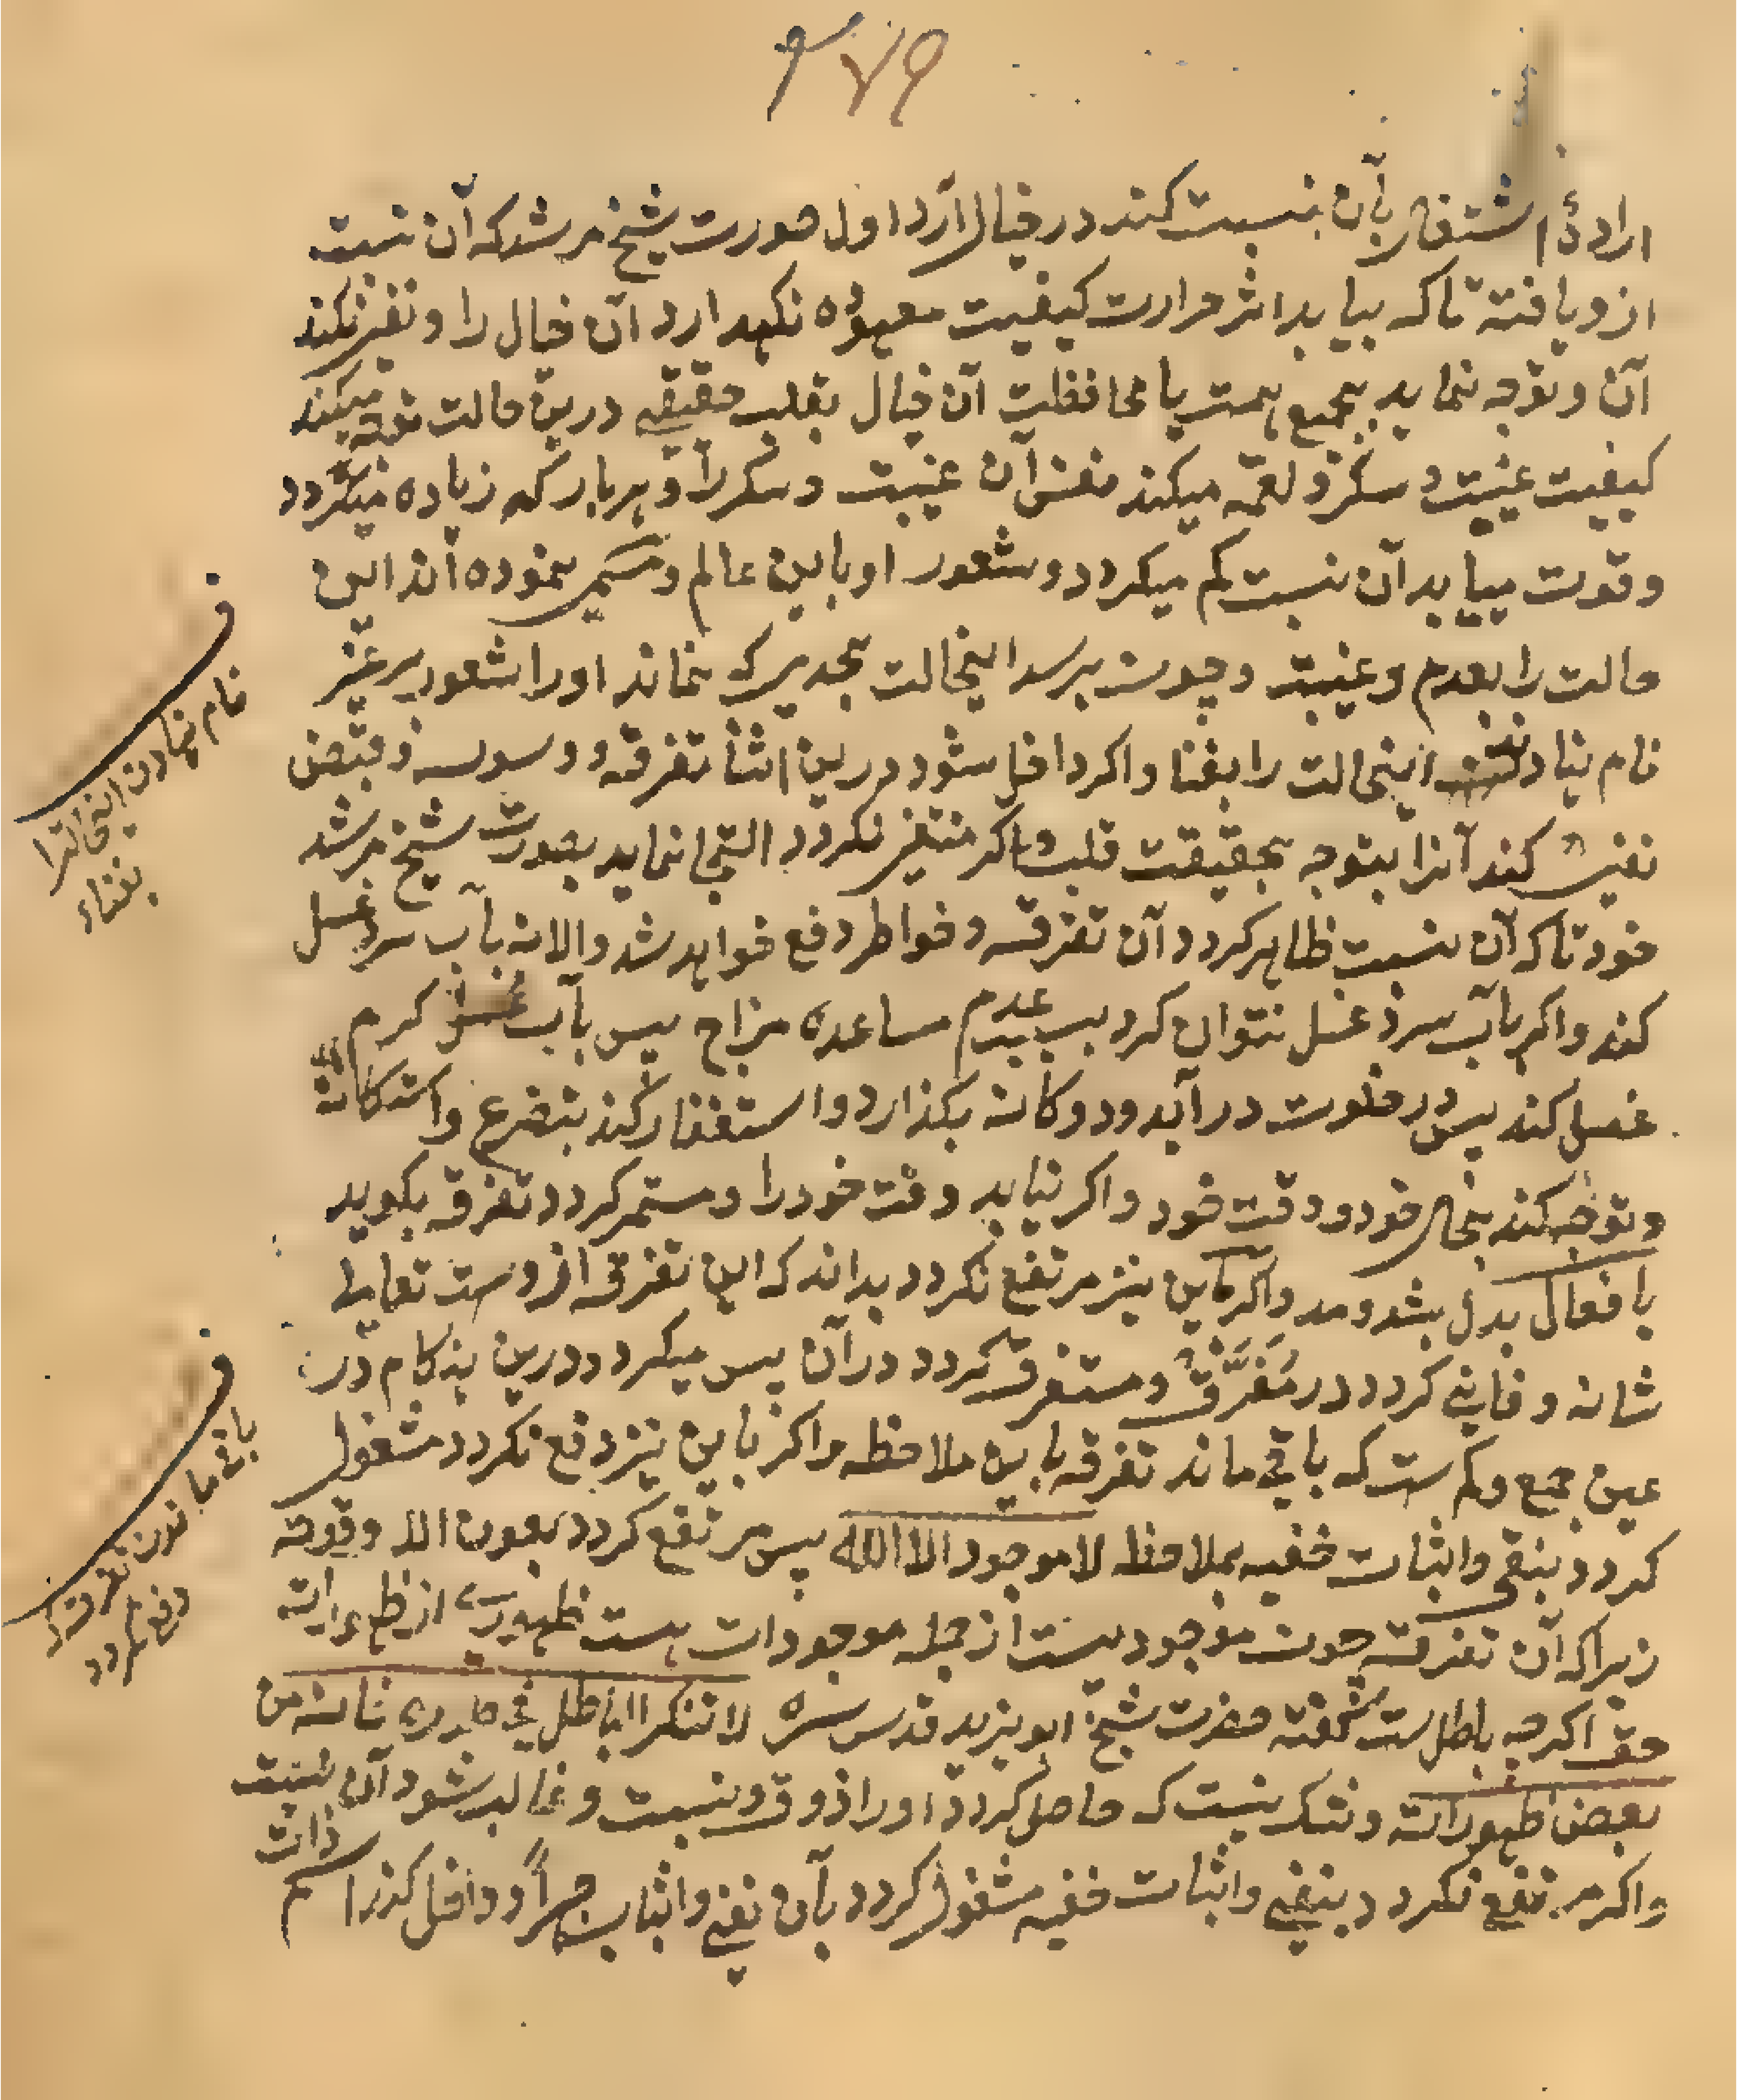 ارادۀ اشتغال بآن نسبت کند در خیال آرد اول صورت شیخ مرشد که آن نسبت
ازو یافته تا که بیابد اثر حرارت کیفیت معهوده نکهدارد آن خیال را و نفی نکند
آن و توجه نماید بجمیع همت با محافظت آن خیال بقلب حقیقی درین حالت توجه میکند
کیفیت غیبت و سکر و میکند نفس آن غیبت و سکر را و هر بار که زیاده میکردد
و قوت مییابد آن نسبت کم میکردد و شعور او باین عالم و مسمی نموده اند این
حالت را بعدم و غیبت و چون برسد اینحالت بحدیکه نماند او را شعور بر غیر
نام نهادند اینحالت را بفنا و اکر داخل شود درین اثنا تفرقه و وسوسه و قبض
نفی کند آنرا بتوجه بحقیقت قلب و اکر منتفی نکردد التجا نماید بصورت شیخ مرشد
خود تا که آن نسبت ظاهر کردد آن تفرقه و خواطر دفع خواهد شد والا نه بآب سرد غسل
کند و اکر بآب سرد غسل نتوان کرد بسبب عدم مساعده مزاج پس بآب کرم
غسل کند پس در خلوت درآید و دوکانه بکذارد و استغفار کند بتضرع و استکانة
و توجه کند بحال خود و وقت خود و اکر نیابد وقت خود را و مستمر کردد تفرقه بکوید
یا فعال بدل بشد و مد و اکر باین نیز مرتفع نکردد بداند که این تفرقه ازوست تعالی
شانه و فانی کردد در مُفَرِّق و مستغرق کردد در آن پس میکردد درین هنکام در
عین جمع و کم ست که باقی ماند تفرقه باین ملاحظه و اکر باین نیز دفع نکردد مشغول
کردد بنفی و اثبات خفیه بملاحظه لا موجود الا الله پس مرتفع کردد بعون الله وقوته
زیراکه آن تفرقه چون موجودیست از جمله موجودات هست ظهوری از ظهورات
حق اکرچه باطل ست کفته حضرت شیخ ابو یزید قدس سره لا تنکر الباطل فی طوره فانه من
بعض ظهوراته و شک نیست که حاصل کردد او را ذوق و نسبت و غالب شود آن نسبت
و اکر مرتفع نکردد بنفی و اثبات خفیه مشغول کردد بآن نفی و اثبات جهراً و داخل کند اسم
ذات
ف
نام نهادن اینحالترا
بفناء
ف
باقی ماندن تفرقه
دفع کردد